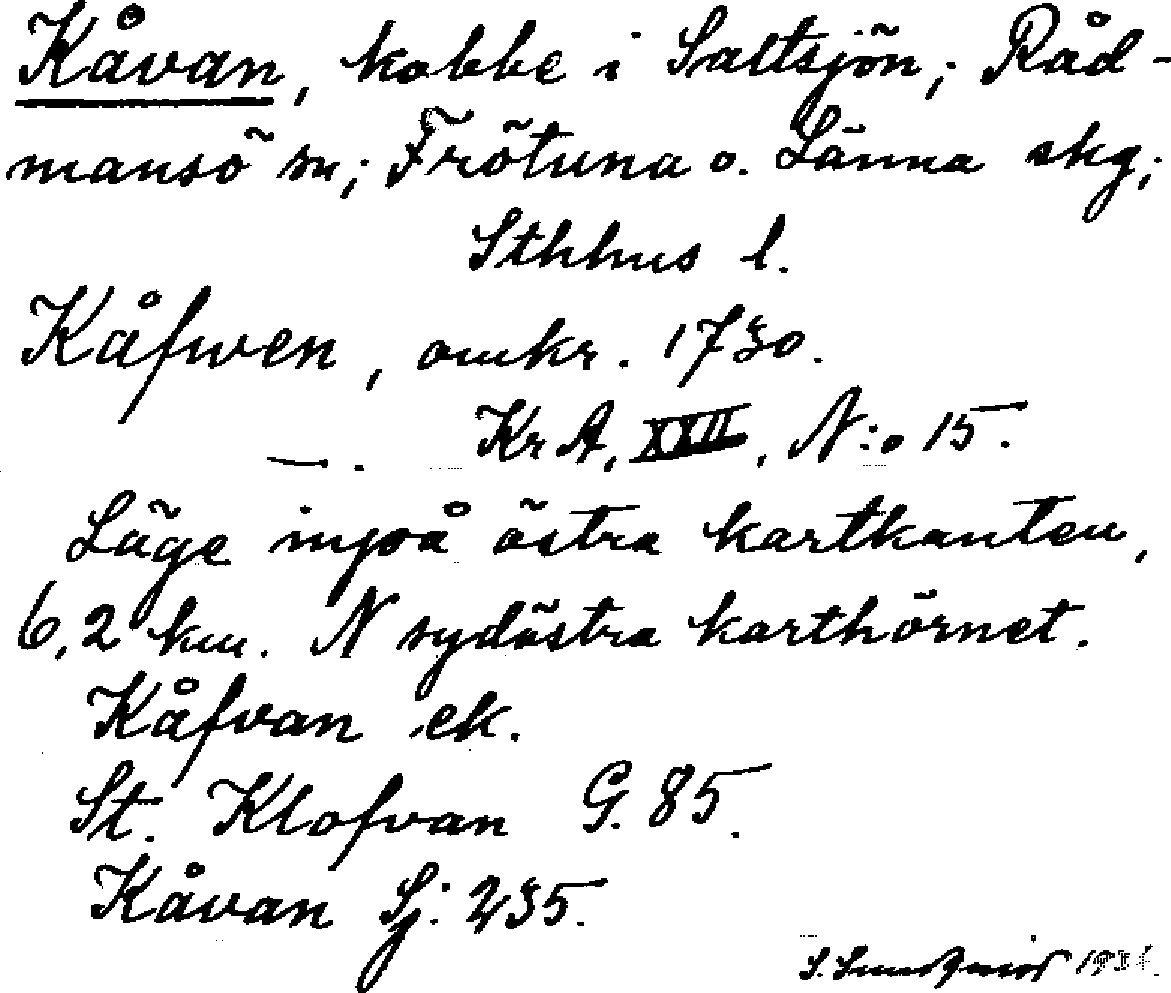 Kåvan, kobbe i Saltsjön; Råd-
mansö sn; Frötuna o. Länna skg;
Sthhus l.
Kåfwen, omkr. 1730.
—. Kr A, XXII, N:o 15.
Läge inpå östra kartkanten,
6,2 km. N sydöstra karthörnet.
Kåfvan ek.
St. Klofvan G. 85.
Kåvan Sj: 235.
S. Sundqvist